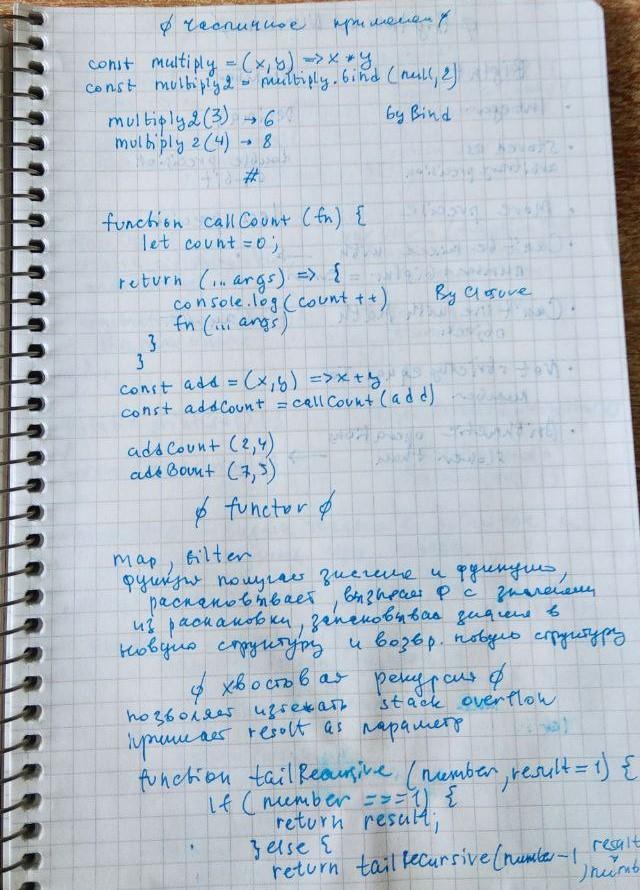 ∅ частичное применен ∅
const multiply = (x, y) => x * y
const multiply2 = multiply.bind (null, 2)
multiply2(3) → 6 by Bind
multiply2(4) → 8
#
function callCount (fn) {
let count = 0;
return (...args) => {
console.log(count++) By Closure
fn (...args)
}
}
const add = (x,y) => x+y
const addCount = callCount (add)
addCount (2,4)
addCount (7,5)
∅ functor ∅
map, filter
функция получает значение и функцию,
распаковывает, вызывает ф с значением
из распаковки, запаковывая значен в
новую структуру и возвр. новую структуру
∅ хвостовая рекурсия ∅
позволяет избежать stack overflow
принимает result as параметр
function tailRecursive (number, result = 1) {
if (number === 1) {
return result;
} else {
return tailRecursive(number-1, result
numb